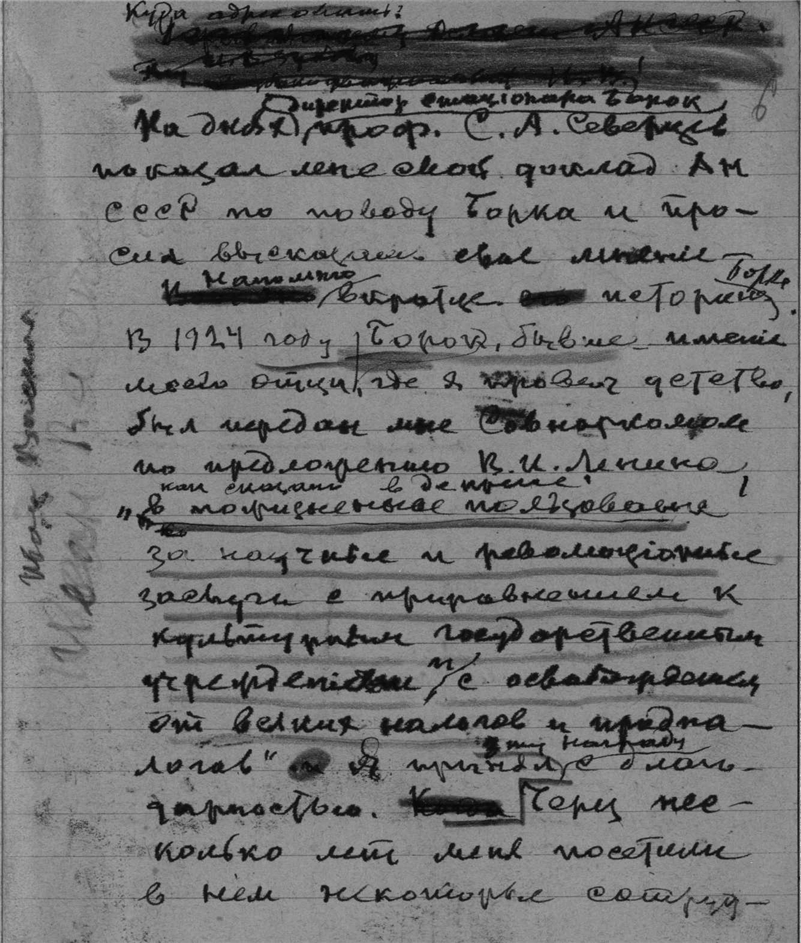 Куда адресовать?
директор стационара Борок
На днях, проф. С. А. Северцов
показал мне свой доклад АН
СССР по поводу Борка и про-
сил высказать свое мнение
Напомню вкратце историю Борка.
В 1924 году Борок, бывшее имение
моего отца, где я провел детство,
был передан мне Совнаркомом
по предложению В. И. Ленина,
как сказано в декрете:
„в пожизненное пользование
за научные и революционные
заслуги с приравнением к
культурным государственным
учреждениям, с освобождением
от всяких налогов и продна-
логов" Я принял эту награду с благо-
дарностью. Через нес-
колько лет меня посетили
в нем некоторые сотруд-